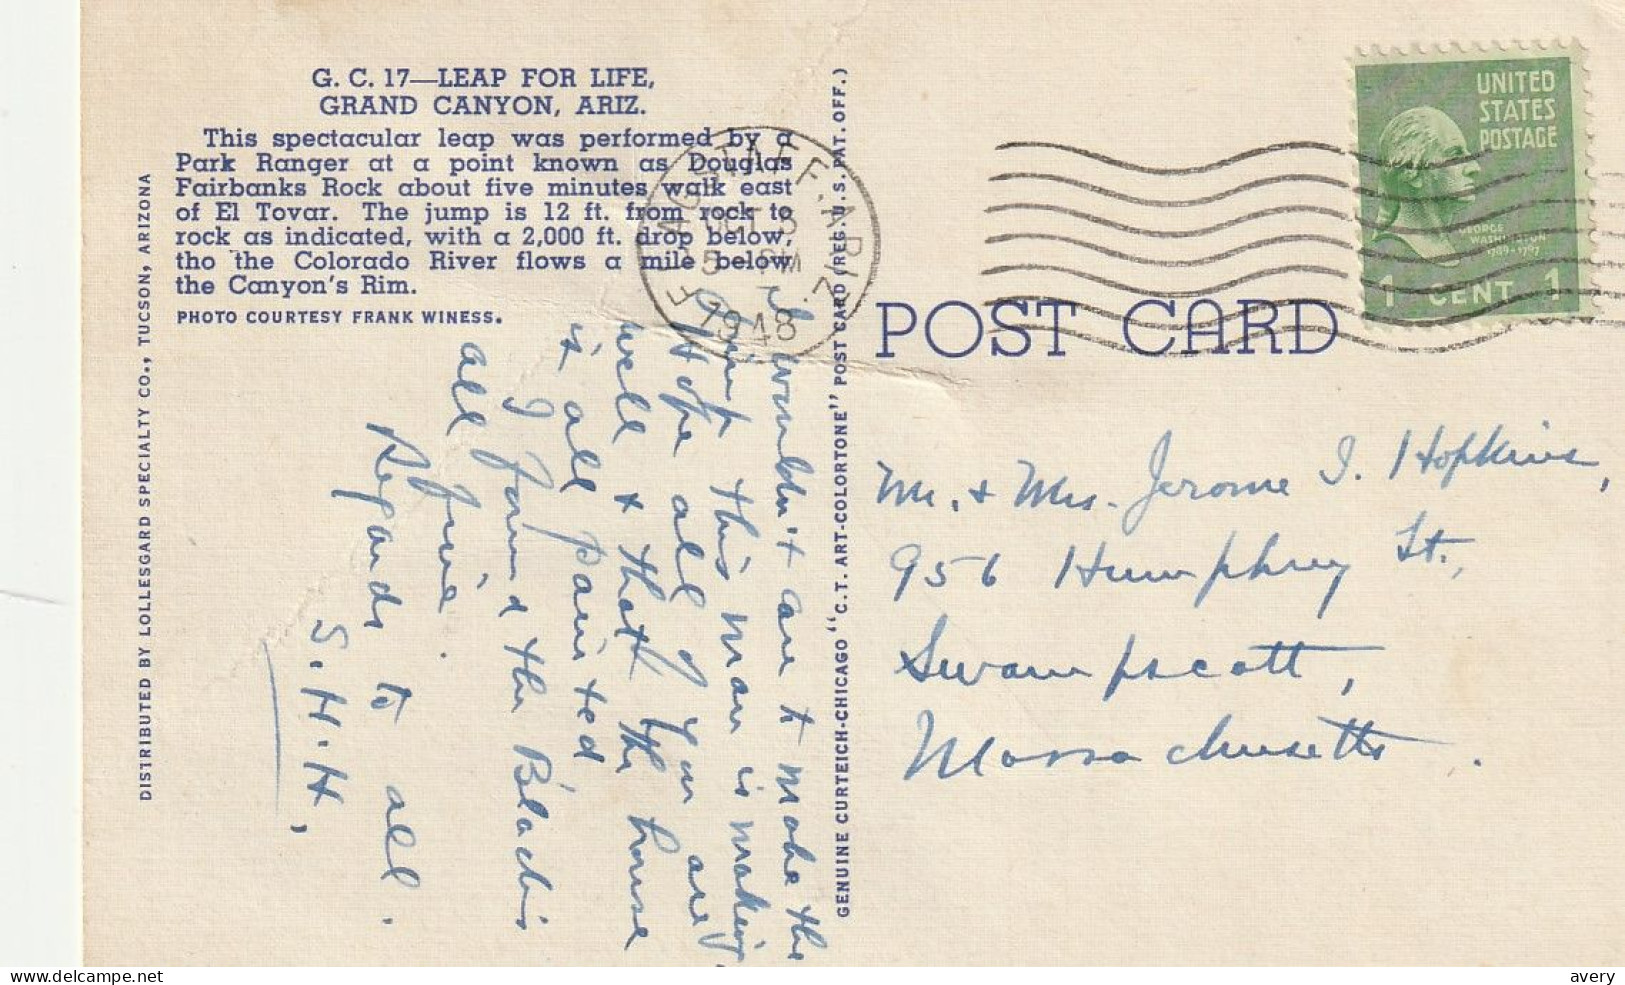 G. C. 17—LEAP FOR LIFE,
GRAND CANYON, ARIZ.
This spectacular leap was performed by a
Park Ranger at a point known as Douglas
Fairbanks Rock about five minutes walk east
of El Tovar. The jump is 12 ft. from rock to
rock as indicated, with a 2,000 ft. drop below,
tho the Colorado River flows a mile below
the Canyon's Rim.
PHOTO COURTESY FRANK WINESS.
DISTRIBUTED BY LOLLESGARD SPECIALTY CO., TUCSON, ARIZONA
I wouldn't care to make the
jump this man is making.
Hope all of you are
well & that the house
is all painted
I found the Blach's
all fine.
Regards to all.
S.H.H.
GENUINE CURTEICH-CHICAGO "C.T. ART-COLORTONE" POST CARD (REG. U.S. PAT. OFF.)
FLAGSTAFF, ARIZ.
OCT 3
5 - PM
1948
UNITED
STATES
POSTAGE
GEORGE
WASHINGTON
1789-1797
1 CENT 1
POST CARD
Mr. & Mrs. Jerome I. Hopkins,
956 Humphrey St.,
Swampscott,
Massachusetts.
avery